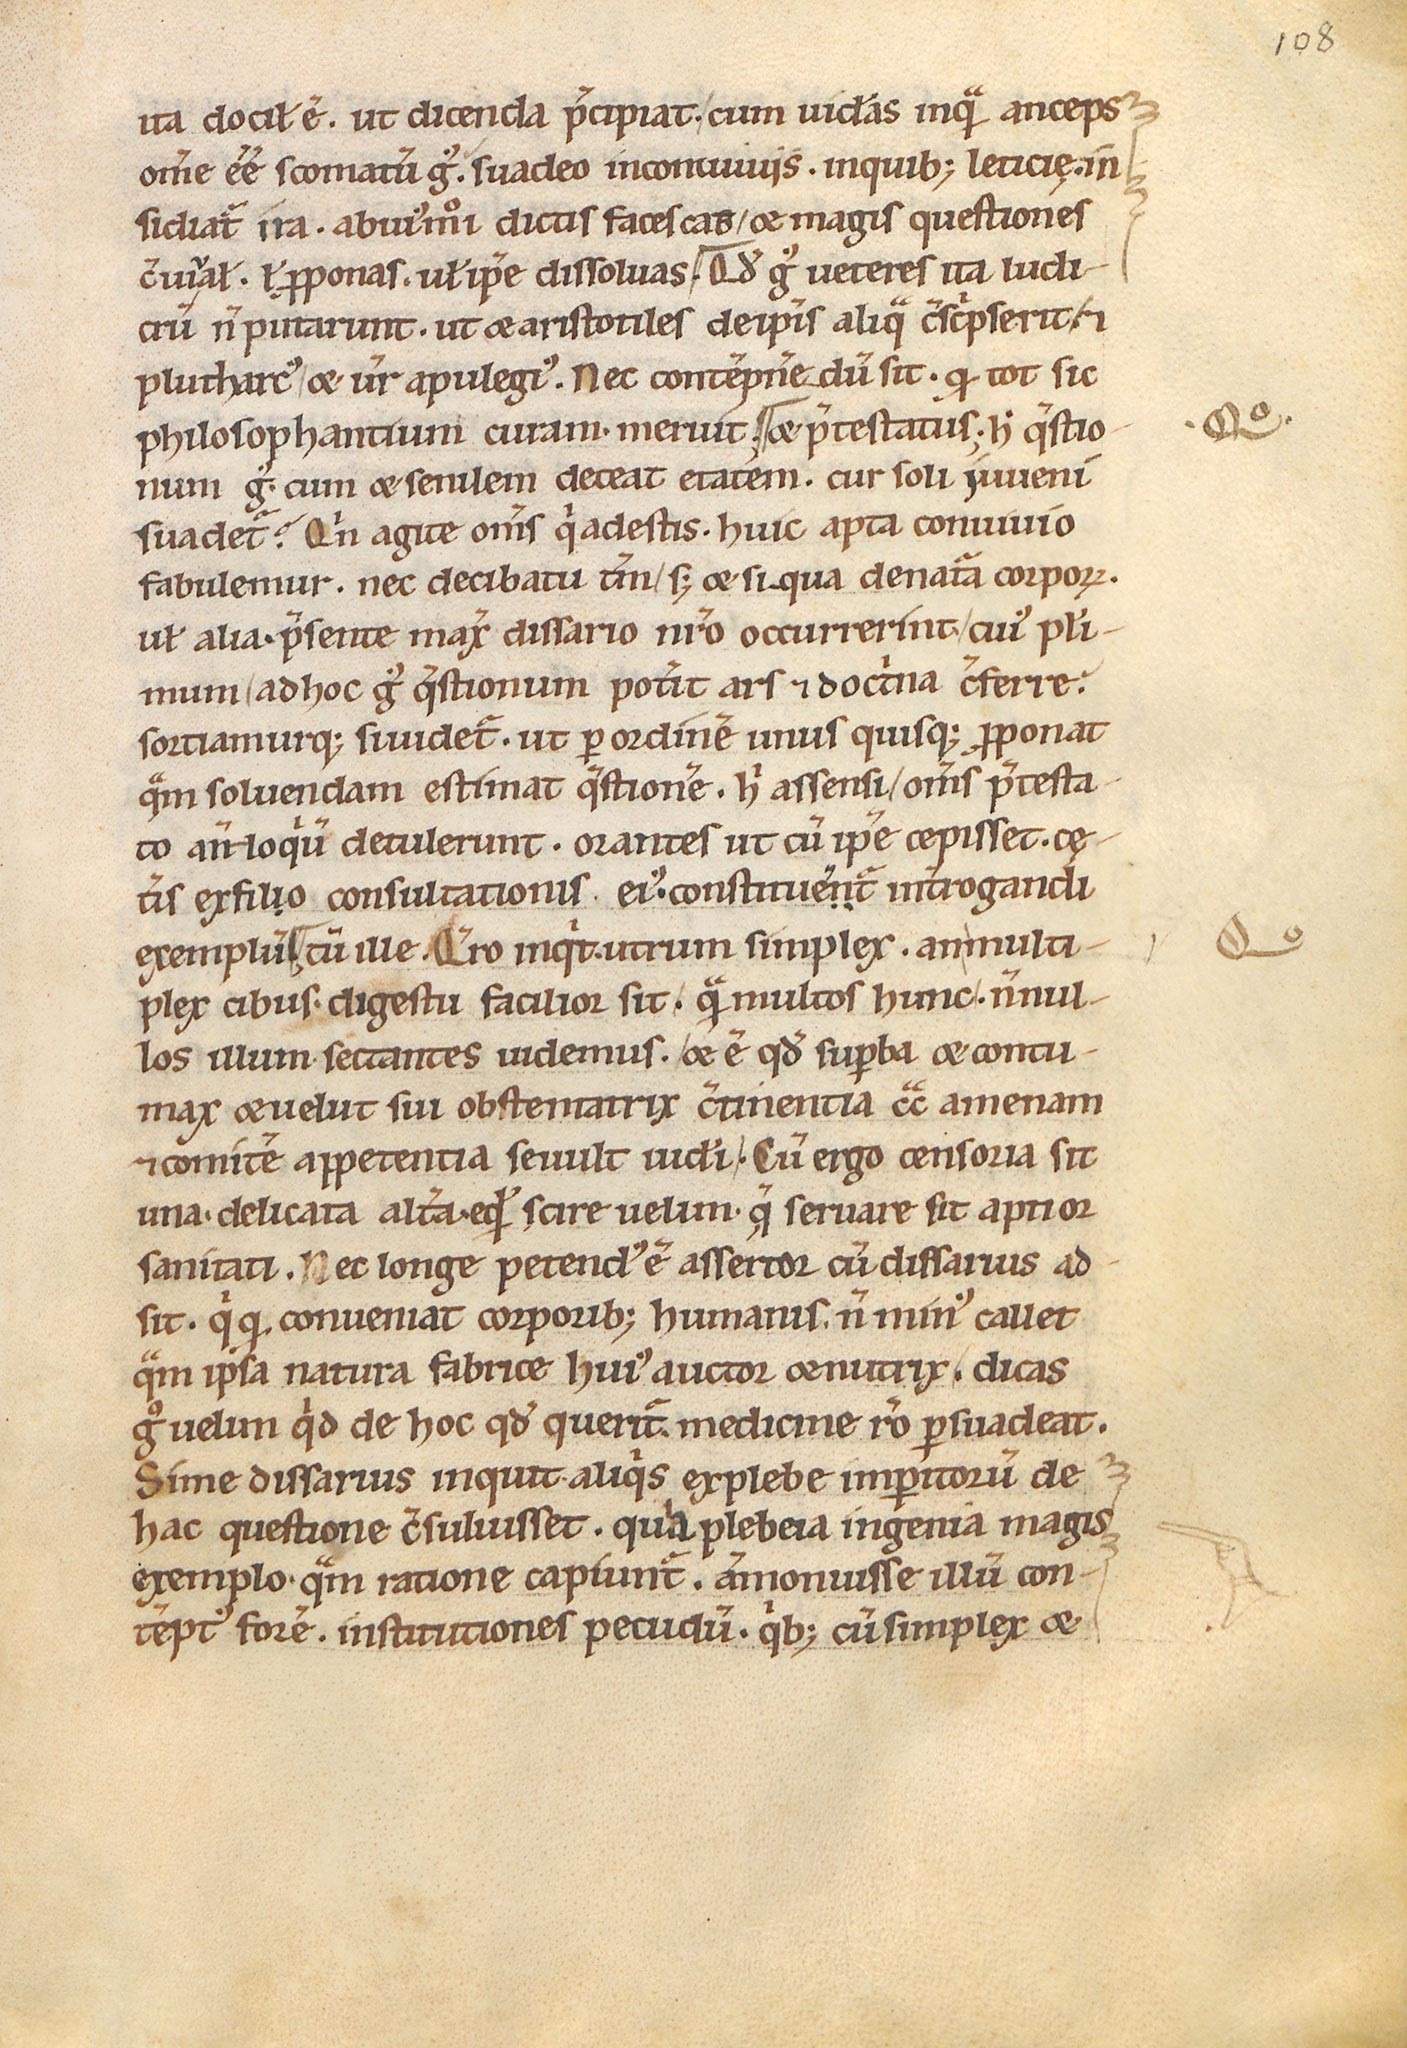 108
ita docił ē. ut dicenda p̄cipiat. cum uideas inqͣ anceps
om̄e ēē scomatū gꝰ. suadeo inconuiuiis. inquib; leticię. in
sidiat᷑ ira. abuiꝰmoi dictis facescas / & magis questiones
c̄uiuał. ł ꝓponas. uł ip̄e dissoluas. Qđ gꝰ ueteres ita ludi-
crū n̄ putarunt. ut & aristotiles deip̄is aliqͣ c̄sc̍pserit / ⁊
plutharcꝰ / & ūr apulegiꝰ. Nec contēpn̄e dū sit. qđ tot sic
philosophantium curam meruit. & p̄testatus. h̍ q̄stio
num gꝰ. cum & senilem deceat etatem. cur soli iuueni
suadet᷑? Q̍n agite om̄s q̍ adestis. huic apta conuiuio
fabulemur. nec decibatu tm̄ / s; & si qua denat᷑a corpoꝝ.
uł alia. p̄sente max̄ dissario nr̄o occurrerint / cuiꝰ pl̍i-
mum / ad hoc gꝰ q̄stionum pot̄it ars ⁊ doct̍na c̄ferre.
sortiamurq; si uidet᷑. ut ꝑ ordinē unus quisq; ꝓponat
qͣm soluendam estimat q̄stionē. h̍ assensi / om̄s p̄testa-
to an̄loq̍ū detulerunt. orantes ut cū ip̄e cepisset. cę-
t̄is exfilio consultationis eiꝰ. constituēnt᷑ int̄rogandi
exemplū. tū ille. Q̄ro inq̍t. utrum simplex. an multi-
plex cibus. digestu facilior sit. qͣ multos hunc. n̄nul-
los illum sectantes uidemus. & ē qđ suꝑba & contu-
max & uelut sui obstentatrix c̄tinentia cͨc amenam
⁊ comitē appetentia seuult uid̍i. Cū ergo censoria sit
una. delicata alt̄a. eqđ scire uelim. q̄ seruare sit aptior
sanitati. Nec longe petendꝰ ē assertor cū dissarius ad-
sit. q̍ qđ conueniat corporib; humanis. n̄ minꝰ callet
qͣm ipsa natura fabrice huiꝰ auctor & nutrix. dicas
gꝰ uelim q̍d de hoc qđ querit᷑. medicine r̄o ꝑsuadeat.
Sime dissarius inquit aliq̍s explebe imꝑitorū de
hac questione c̄suluisset. quia plebeia ingenia magis
exemplo. qͣm ratione capiunt᷑. am̄onuisse illū con-
tēptꝰ forē. institutiones pecudū. q̍b; cū simplex &
.Qº.
Qº